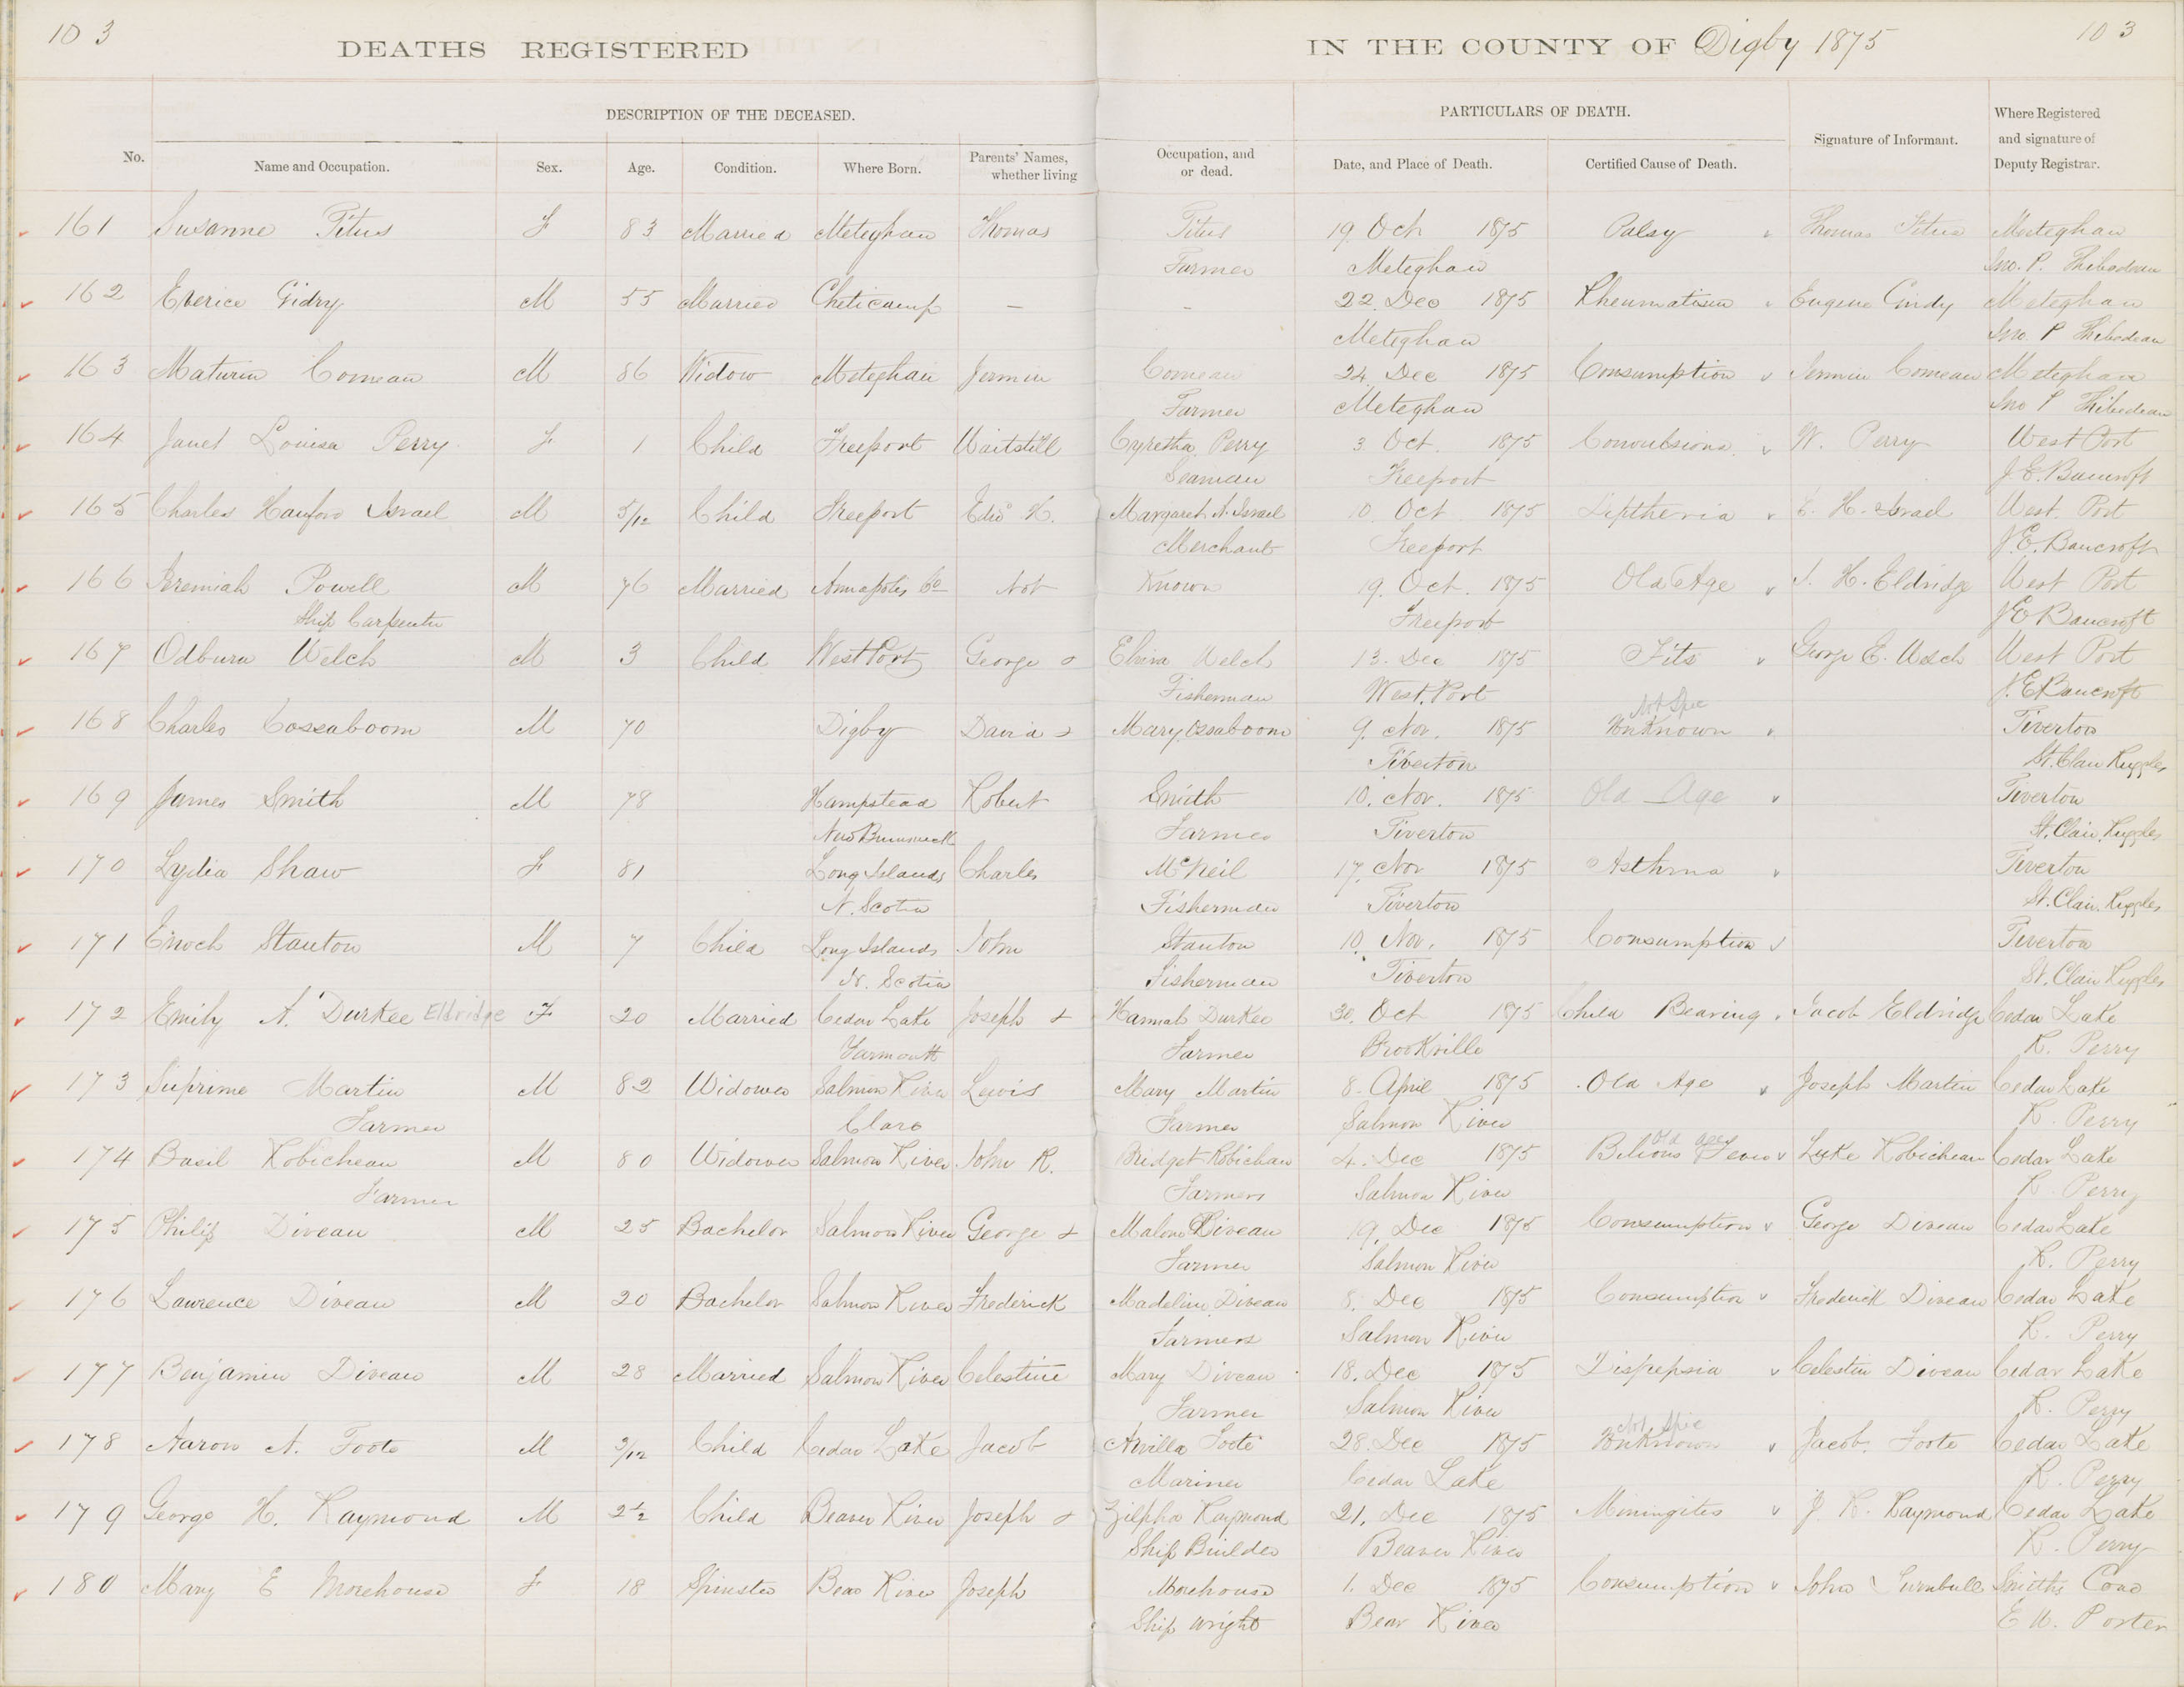 103
DEATHS REGISTERED
IN THE COUNTY OF Digby 1875
103
DESCRIPTION OF THE DECEASED.
PARTICULARS OF DEATH.
No.
Name and Occupation.
Sex.
Age.
Condition.
Where Born.
Parents' Names, whether living
Occupation, and or dead.
Date, and Place of Death.
Certified Cause of Death.
Signature of Informant.
Where Registered and signature of Deputy Registrar.
161 Susanne Titus F 83 Married Meteghan Thomas Titus 19 Oct 1875 Palsy Thomas Titus Meteghan
Farmer Meteghan Jno. P. Thibodeau
162 Everice Gidry M 55 Married Cheticamp - - 22. Dec 1875 Rheumatism Eugene Meteghan
Meteghan Jno P Thibodeau
163 Maturin Comeau M 86 Widow Meteghan Jermin Comeau 24. Dec 1875 Consumption Jermin Comeau Meteghan
Farmer Meteghan Jno P Thibodeau
164 Janet Louisa Perry F 1 Child Freeport Waitstill Cyretha Perry 3 Oct. 1875 Convulsions W. Perry West Port
Seaman Freeport J. E. Bancroft
165 Charles Hanford Israel M 5/12 Child Freeport Edwd H. Margaret A. Israel 10. Oct. 1875 Diptheria E. H. Israel West Port
Merchant Freeport J. E. Bancroft
166 Jeremiah Powell M 76 Married Annapolis Co Not Known 19. Oct. 1875 Old Age H. Eldridge West Port
Ship Carpenter Freeport J E Bancroft
167 Odburn Welch M 3 Child West Port George & Elvira Welch 13. Dec 1875 Fits George E. Welch West Port
Fisherman West. Port J. E Bancroft
Not Spec
168 Charles Cossaboom M 70 Digby David & Mary Ossaboom 9. Nov. 1875 Unknown Tiverton
Tiverton St. Clair Ruggles
169 James Smith M 78 Hampstead Robert Smith 10. Nov. 1875 Old Age Tiverton
New Brunswick Farmer Tiverton St. Clair Ruggles
170 Lydia Shaw F 81 Long Islands Charles McNeil 17. Nov 1875 Asthma Tiverton
N. Scotia Fisherman Tiverton St. Clair. Ruggles
171 Enoch Stanton M 7 Child Long Islands John Stanton 10. Nov. 1875 Consumption Tiverton
N. Scotia Fisherman Tiverton St. Clair Ruggles
172 Emily A. Durkee Eldridge F 20 Married Cedar Lake Joseph & Hannah Durkee 30. Oct 1875 Child Bearing Jacob Eldridge Cedar Lake
Yarmouth Farmer Brookville R. Perry
173 Suprime Martin M 82 Widower Salmon River Lewis Mary Martin 8. April 1875 Old Age Joseph Martin Cedar Lake
Farmer Clare Farmer Salmon River R. Perry
Old age
174 Basil Robicheau M 80 Widower Salmon River John R. Bridget Robichau 4. Dec 1875 Bilious Fever Luke Robicheau Cedar Lake
Farmer Farmers Salmon River R. Perry
175 Philip Diveau M 25 Bachelor Salmon River George & Diveau 19. Dec 1875 Consumption George Diveau Cedar Lake
Farmer Salmon River R. Perry
176 Lawrence Diveau M 20 Bachelor Salmon River Frederick Madeline Diveau 8. Dec 1875 Consumption Frederick Diveau Cedar Lake
Farmers Salmon River R. Perry
177 Benjamin Diveau M 28 Married Salmon River Celestine Mary Diveau 18. Dec 1875 Dispepsia Celestin Diveau Cedar Lake
Farmer Salmon River R. Perry
Not Spec
178 Aaron A. Foote M 3/12 Child Cedar Lake Jacob Arvilla Foote 28. Dec 1875 Unknown Jacob. Foote Cedar Lake
Mariner Cedar Lake R. Perry
179 George H. Raymond M 2½ Child Beaver River Joseph & Zilpha Raymond 21. Dec 1875 Miningites J. R. Raymond Cedar Lake
Ship Builder Beaver River R. Perry
180 Mary E Morehouse F 18 Spinster Bear River Joseph Morehouse 1. Dec 1875 Consumption John Turnbull Smiths Cove
Ship wright Bear River E W. Porter